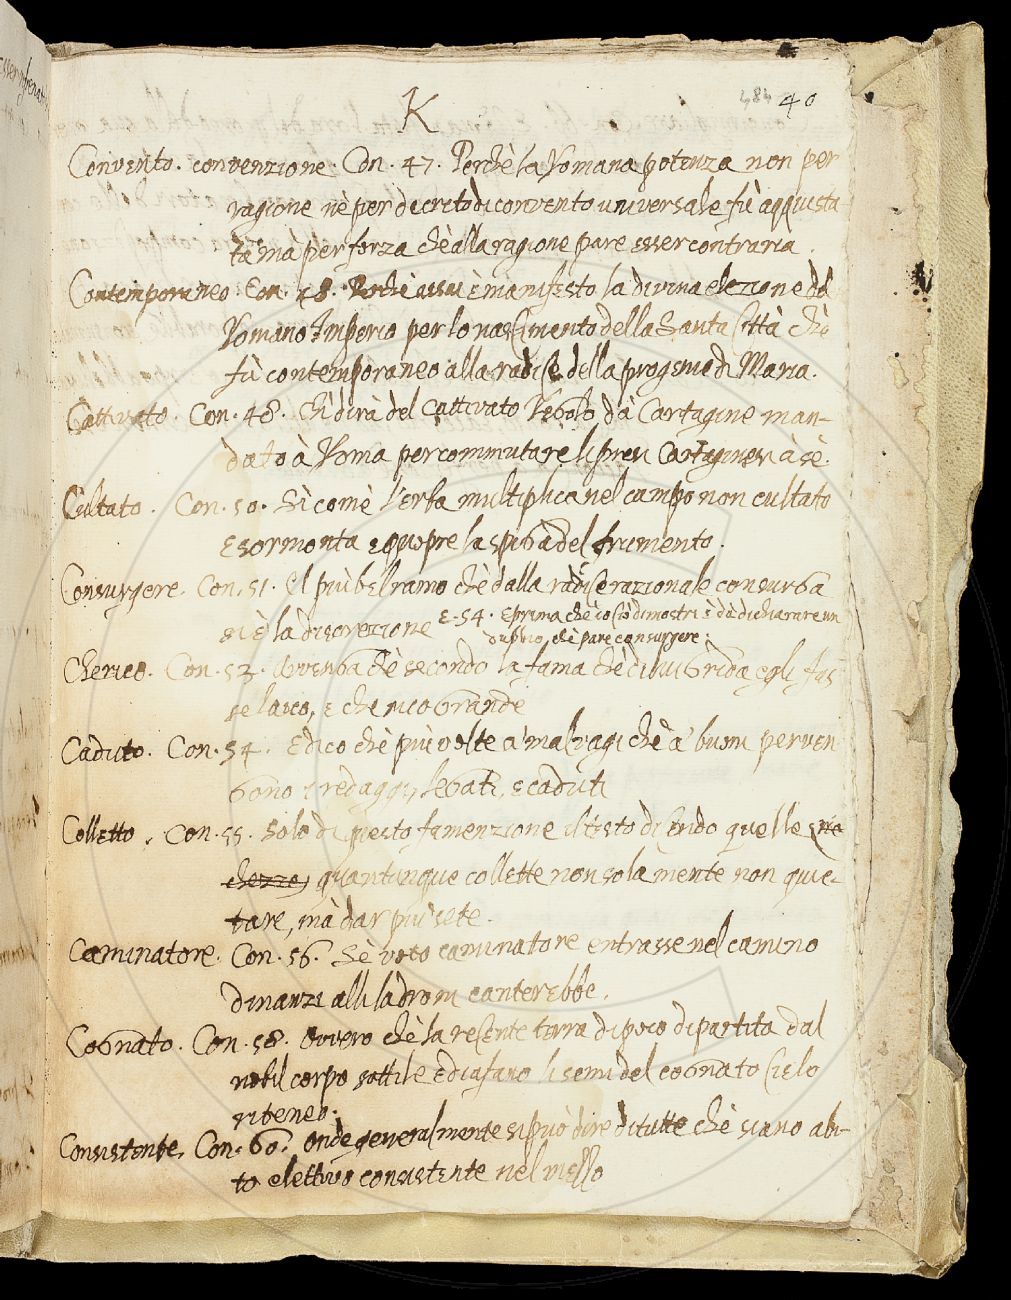 K 484 40
Convento. convenzione Con. 47. Perchè la Romana potenza non per
ragione nè per decreto di convento universale fù acquista
ta ma per forza chè alla ragione pare esser contraria.
Contemporaneo. Con. 48. è manifesto la divina elezione del
Romano Imperio per lo nascimento della Santa Città chè
fù contemporaneo alla radice della progenie di Maria.
Cattivato. Con. 48. Chi dirà del cattivato Regolo dà Cartagine man-
dato à Roma per commutare li presi Cartaginesi à sè
Cultato. Con. 50. Sì comè l'erba multiplica nel campo non cultato
e sormonta e cuopre la spiga del frumento.
Consurgere. Con. 51. El più bel ramo chè dalla radice razionale consurga
si è la discrezione E. 54. E prima chè ciò dimostri è dà dichiarare un
dubbio, chè pare consurgere:
Cherico. Con. 52. Avvenga chè secondo la fama chè di lui grida egli fus
se laico, e cherico grande
Caduto. Con. 54. E dico chè più volte a' malvagi chè a' buoni perven
gono i redaggi, legati, e caduti
Colletto. Con. 55. Solo di questo fa menzione il testo dicendo quelle
quantunque collette non solamente non quie-
tare, mà dar più sete.
Caminatore. Con. 56. Sè voto caminatore entrasse nel camino
dinanzi alli ladroni canterebbe.
Cognato. Con. 58. Ovvero chè la recente terra di poco dipartita dal
nobil corpo sottile e diafano li semi del cognato Cielo
riteneo.
Consistente. Con. 60. Onde generalmente si può dire di tutte chè siano abi-
to elettivo consistente nel mezzo